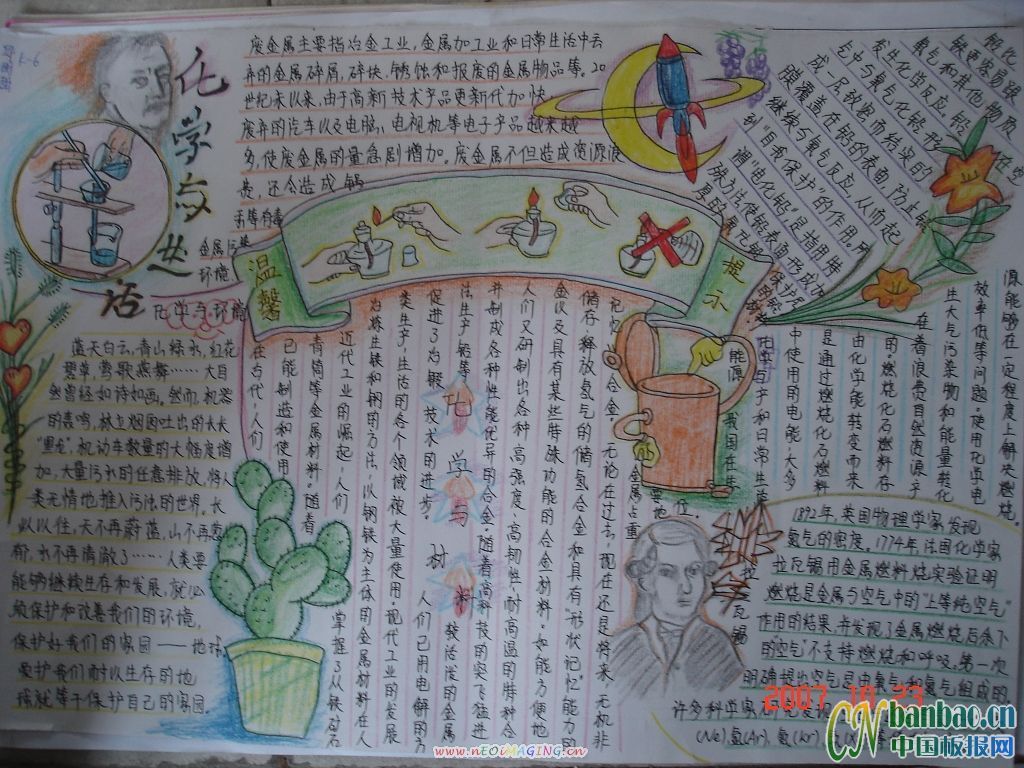 化学与生活
废金属主要指冶金工业,金属加工业和日常生活中丢
弃的金属碎屑,碎块,锈蚀和报废的金属物品等。20
世纪末以来,由于高新技术产品更新代加快
废弃的汽车以及电脑,电视机等电子产品越来越
多,使废金属的量急剧增加。废金属不但造成资源浪
费,还会造成
金属污染
环境
温馨
提示
化学与环境
蓝天白云,青山绿水,红花
碧草,莺歌燕舞……大自
然曾经如诗如画。然而,机器
的轰鸣,林立烟囱吐出的长长
"黑龙",机动车数量的大幅度增
加,大量污水的任意排放,将人
类无情地推入污浊的世界。长
以以往,天不再蔚蓝,山不再
水不再清澈了……人类要
能够继续生存和发展,就
须保护和改善我们的环境,
保护好我们的家园——地球
爱护我们耐以生存的地
球就等于保护自己的家园。
化学与材料
在古代,人们
已能制造和使用
青铜等金属材料。随着
近代工业的崛起,人们
掌握了从铁矿石
冶炼生铁和钢的方法,以钢铁为主体的金属材料在人
类生产、生活的各个领域被大量使用。现代工业的发展
促进了冶锻技术的进步。
人们已用电解的方
法生产铝等
较活泼的金属
并制成各种性能优异的合金。随着高科技的突飞猛进
人们又研制出各种高强度、高韧性、耐高温的特种合
金以及具有某些特殊功能的合金材料。如能方便地
储存、释放氢气的储氢合金和具有"形状记忆"能力的
记忆合金。无论在过去,现在还是将来,无机非
金属占重
要地
位。
能源
我国在生
产和日常生活
中使用的电能,大多
是通过燃烧化石燃料
由化学能转变而来
的。燃烧化石燃料存
在着浪费自然资源、产
生大气污染物和能量转化
效率低等问题。使用化学电
源能够在一定程度上解决燃烧。
发生化学反应。铝在
空气中与氧气化铝,形
成一层致密而结实的
膜覆盖在铝的表面,防止铝
继续与氧气反应,从而起
到"自我保护"的作用。所
谓"电化铝"是指用特
殊方法使铝表面形成加
厚的氧化
拉瓦锡
1892年,英国物理学家发现
氮气的密度。1774年,法国化学家
拉瓦锡用金属燃料烧实验证明
燃烧是金属与空气中的"上等纯空气"
作用的结果,并发现了金属燃烧后余下
的空气"不支持燃烧和呼吸,第一次
明确提出空气是由氧气和氮气组成的
许多科学家研究发现
(Ne)氩(Ar),氪(Kr),
2007 10 23
www.nEOiMAGING.cn
banbao.cn
中国板报网